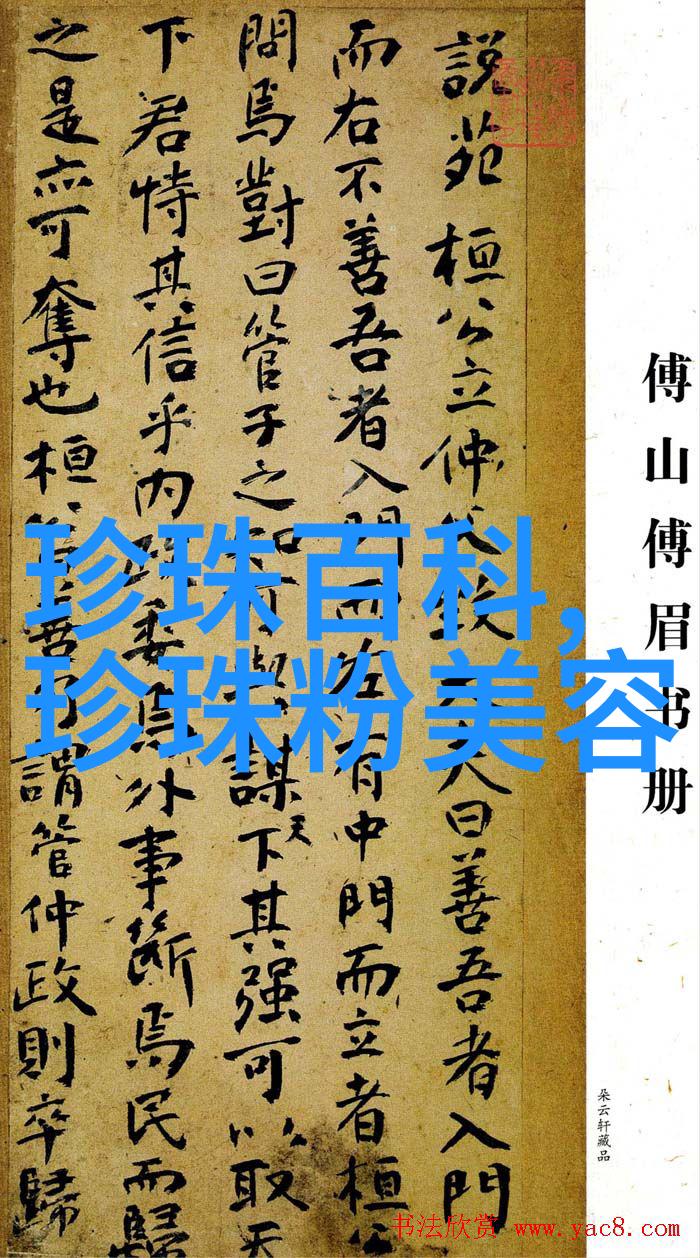 說苑 桓公立仲父致大夫曰善吾者入門
而右不善吾者入門而左有中門而立者桓公
問焉對曰管子之知可與謀天下其强可以取天
下君恃其信乎內政委焉外事斷焉民而歸
之是亦可奪也桓公曰善乃謂管仲政則卒歸
傅山傅眉书册
朵云轩藏品
珍珠百科,
珍珠粉美容
书法欣赏 www.yac8.com